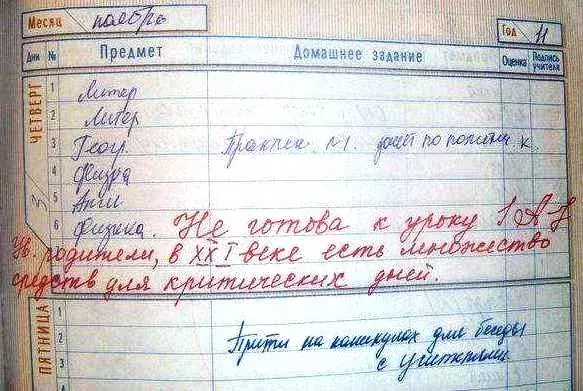 Месяц ноябрь
Год 11
Дни № Предмет Домашнее задание Оценка Подпись учителя
ЧЕТВЕРГ
1 Литер
2 Литер
3 Геогр. Практич. №1. по к.
4 Физра
5 Англ
6 Физика. Не готова к уроку
Ув. родители, в XXI веке есть множество
средств для критических дней.
ПЯТНИЦА
1
2 Прийти на каникулах для беседы
3 с учителями.